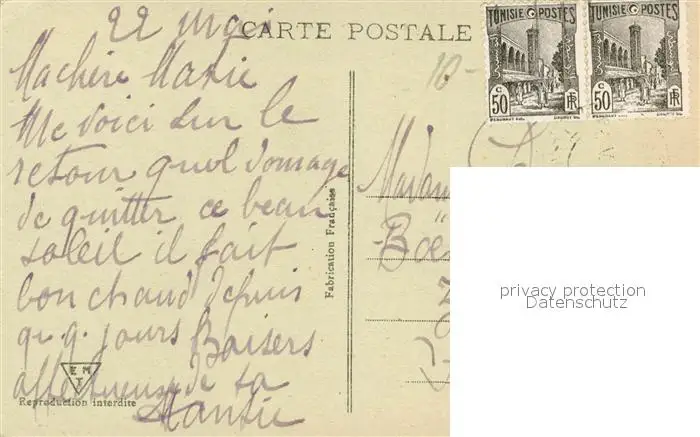 22 mai
CARTE POSTALE
TUNISIE POSTES
TUNISIE POSTES
50 C
RF
50 C
RF
10-
Ma chère Marie
Me voici sur le
retour quel domage
de quitter ce beau
soleil il fait
bon chaud depuis
qq jours Baisers
affectueuse de ta
Fabrication Française
Madam
Boë
privacy protection
Datenschutz
EMT
Reproduction interdite